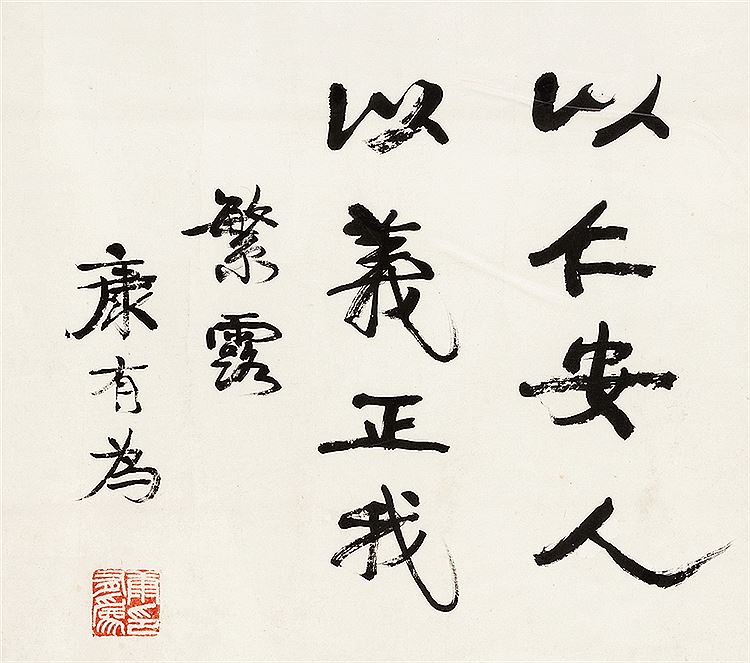 以仁安人
以義正我
繁露
康有為
康有為印